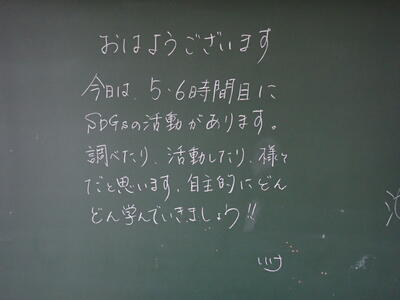 おはようございます
今日は、5・6時間目に
SDGsの活動があります。
調べたり、活動したり、様々
だと思います。自主的にどん
どん学んでいきましょう!!